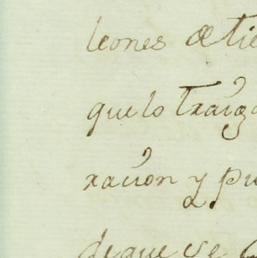 leones de tie
que lo traiga
racion y pu
de que se